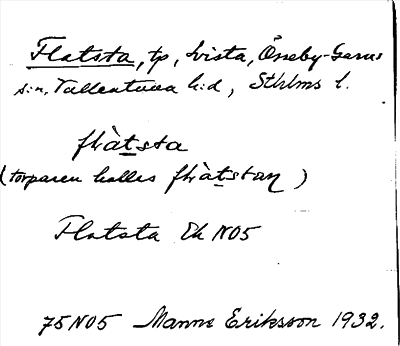 Flatsta, tp, Lvista, Össeby-Garns
s:n, Vallentuna h:d, Sthlms l.
flàtsta
(torparen kallas flàtstan)
Flatsta Ek NO5
75NO5 Manne Eriksson 1932.